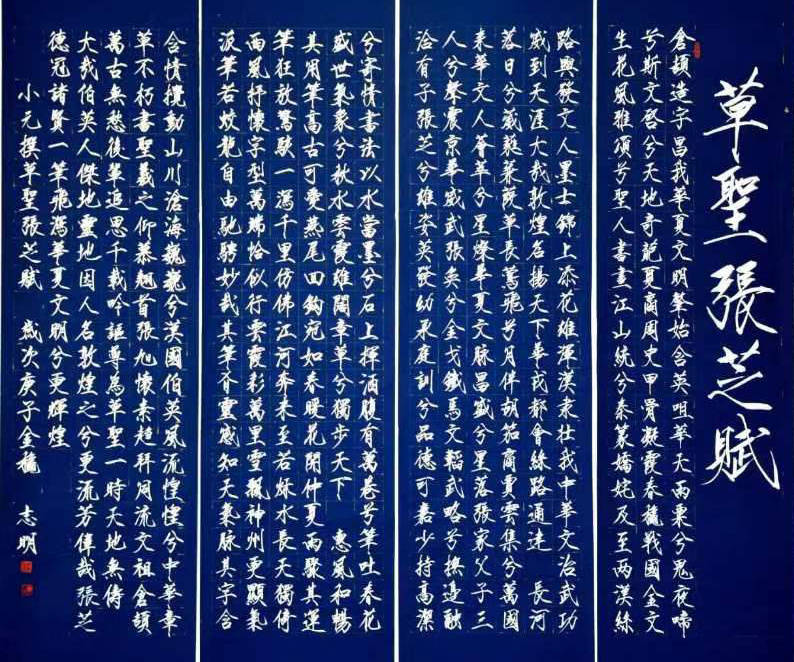 草聖張芝賦
倉頡造字昌我華夏文明肇始含英咀華天雨粟兮鬼夜啼
兮斯文啓兮天地奇龍夏商周史甲骨凝霞春穐戰國金文
生花風雅頌兮聖人書畫江山統兮秦篆嬌姹及至两漢絲
路興發文人墨士錦上添花雄渾漢隶壯我中華文治武功
威到天涯大哉敦煌名揚天下華戎都會絲路通達 長河
落日兮葳蕤蒹葭草長鶯飛兮月伴胡笳商賈雲集兮萬國
来華文人薈萃兮星燦華夏文脉昌盛兮星落張家父子三
人兮聲震京華威武張奂兮金戈鐵馬文韜武略兮撫邊融
洽有子張芝兮雄姿英發幼承庭訓兮品德可嘉少持高潔
兮寄情書法以水當墨兮石上揮洒腹有萬卷兮筆吐春花
盛世氣象兮秋水雲霞雄闊章草兮獨步天下 惠風和暢
其用筆高古可愛燕尾回鈎宛如春暖花開仲夏雨驟其運
筆狂放驚駭一瀉千里仿佛江河奔来至若秌水長天獨倚
西風抒懷字型萬端恰似行雲霞彩萬里雪飄神州更顯氣
派筆若蛟龍自由馳騁妙哉其筆介靈感知天氣脉其字含
含情攪動山川滄海巍巍兮漢國伯英風流惶惶兮中華章
草不朽書聖羲之仰慕翹首張旭懷素超拜同流文祖倉頡
萬古無愁後輩追思千載吟謳尊為草聖一時天地無儔
大哉伯英人傑地靈地因人名敦煌之兮更流芳偉哉張芝
德冠諸賢一筆飛瀉華夏文明兮更輝煌
小元撰草聖張芝賦 歲次庚子金穐 志明